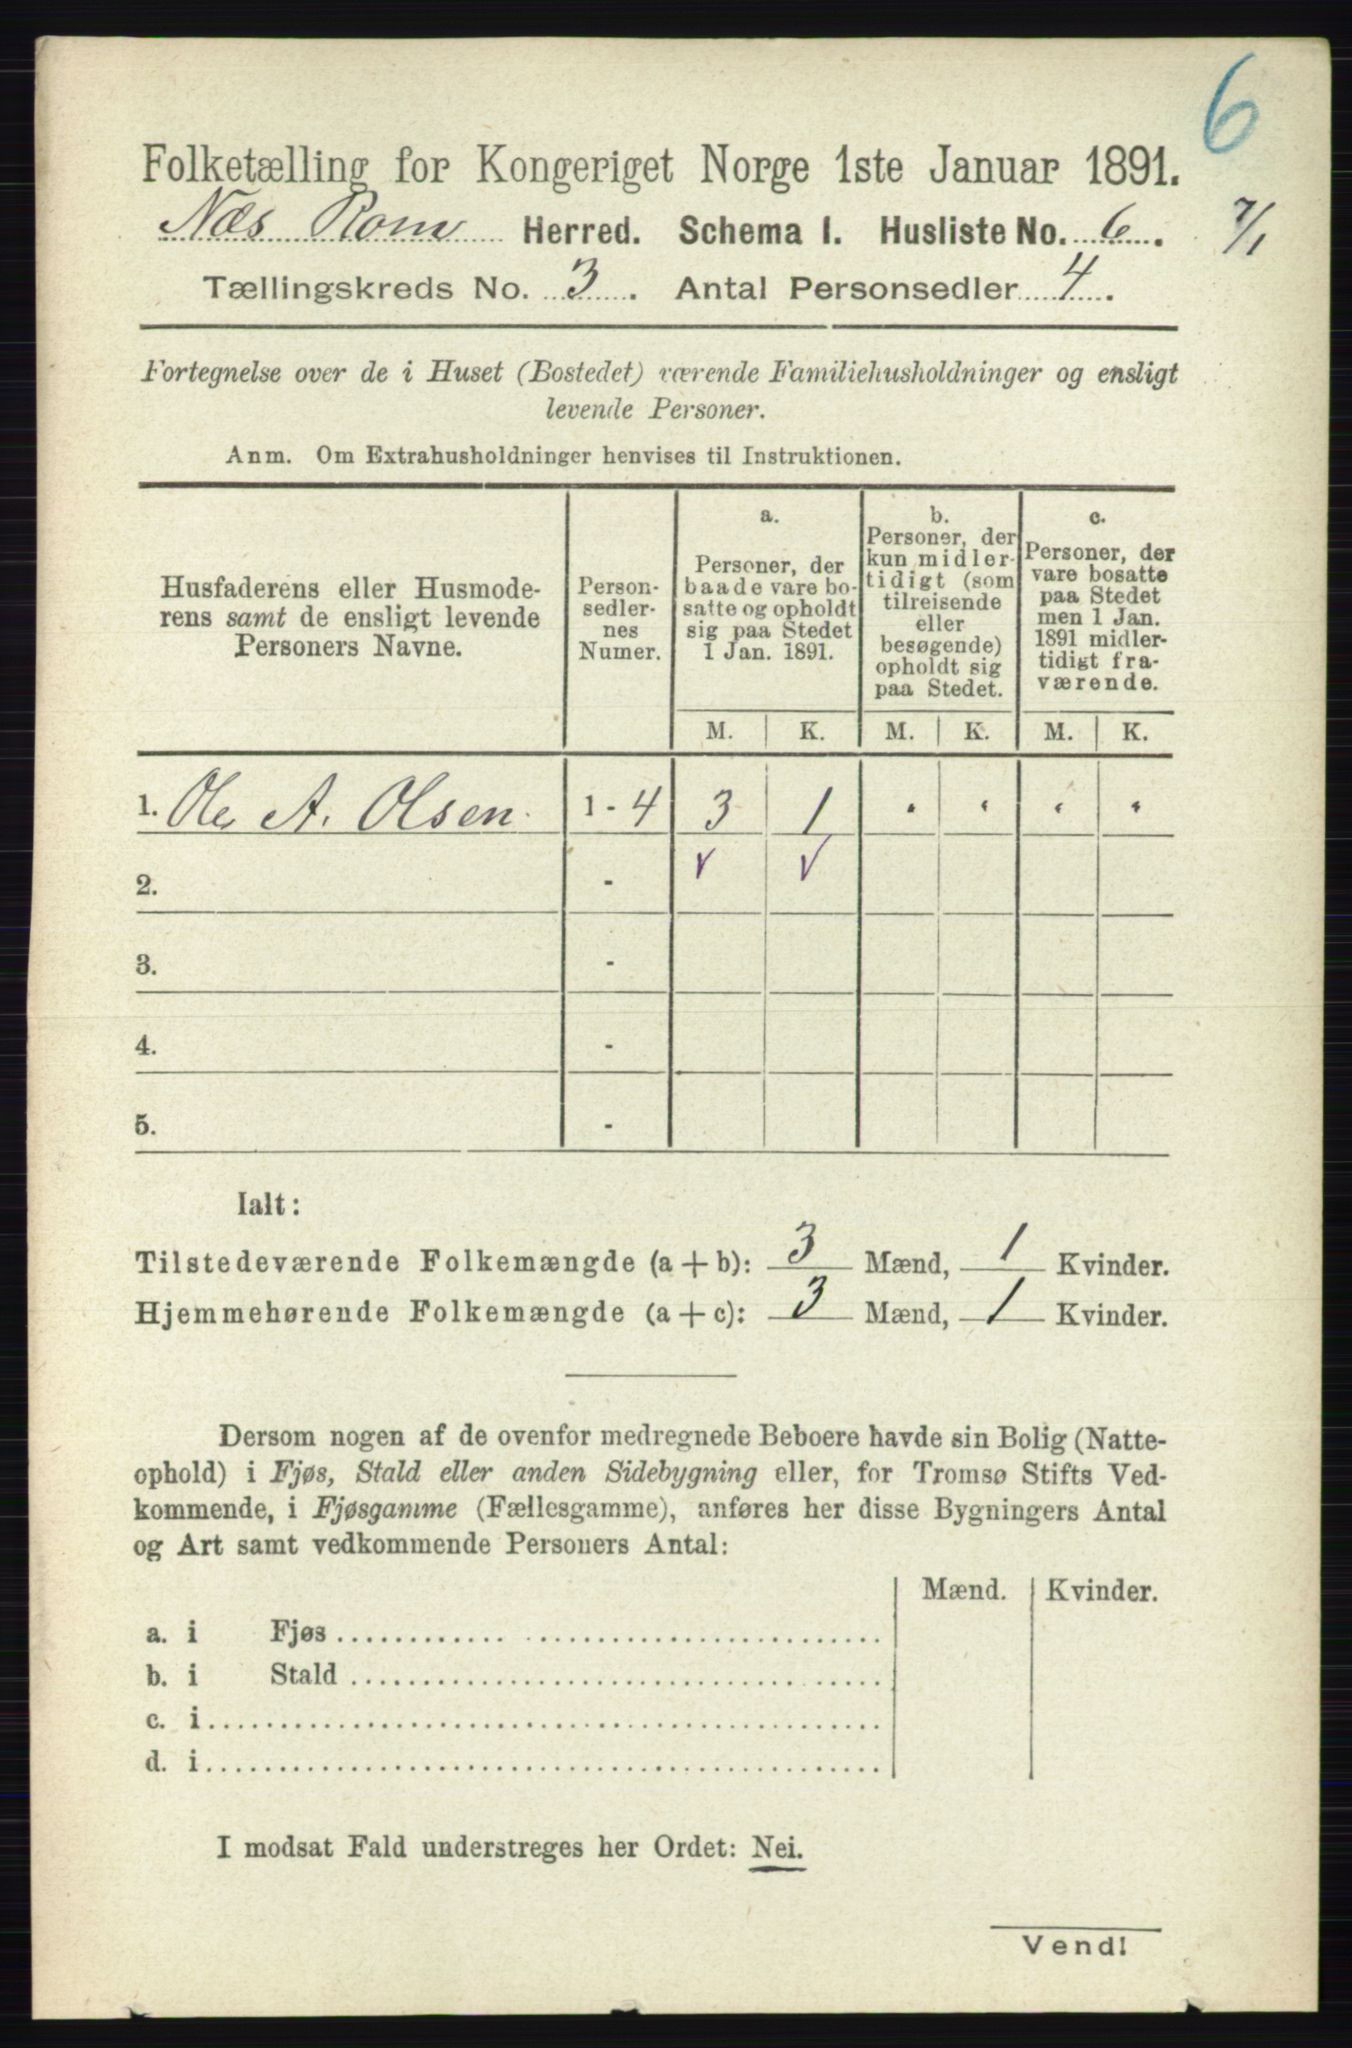 6
Folketælling for Kongeriget Norge 1ste Januar 1891.
Næs Rom Herred. Schema I. Husliste No. 6. 7/1
Tællingskreds No. 3. Antal Personsedler 4.
Fortegnelse over de i Huset (Bostedet) værende Familiehusholdninger og ensligt
levende Personer.
Anm. Om Extrahusholdninger henvises til Instruktionen.
Husfaderens eller Husmode-
rens samt de ensligt levende
Personers Navne.
Person-
sedler-
nes
Numer.
a.
Personer, der
baade vare bo-
satte og opholdt
sig paa Stedet
1 Jan. 1891.
b.
Personer, der
kun midler-
tidigt (som
tilreisende
eller
besøgende)
opholdt sig
paa Stedet.
c.
Personer, der
vare bosatte
paa Stedet
men 1 Jan.
1891 midler-
tidigt fra-
værende.
M. K. M. K. M. K.
1. Ole A. Olsen. 1 - 4 3 1 " " " "
2. - √ √
3. -
4. -
5. -
Ialt:
Tilstedeværende Folkemængde (a + b): 3 Mænd, 1 Kvinder.
Hjemmehørende Folkemængde (a + c): 3 Mænd, 1 Kvinder.
Dersom nogen af de ovenfor medregnede Beboere havde sin Bolig (Natte-
ophold) i Fjøs, Stald eller anden Sidebygning eller, for Tromsø Stifts Ved-
kommende, i Fjøsgamme (Fællesgamme), anføres her disse Bygningers Antal
og Art samt vedkommende Personers Antal:
Mænd. Kvinder.
a. i Fjøs
b. i Stald
c. i
d. i
I modsat Fald understreges her Ordet: Nei.
Vend!